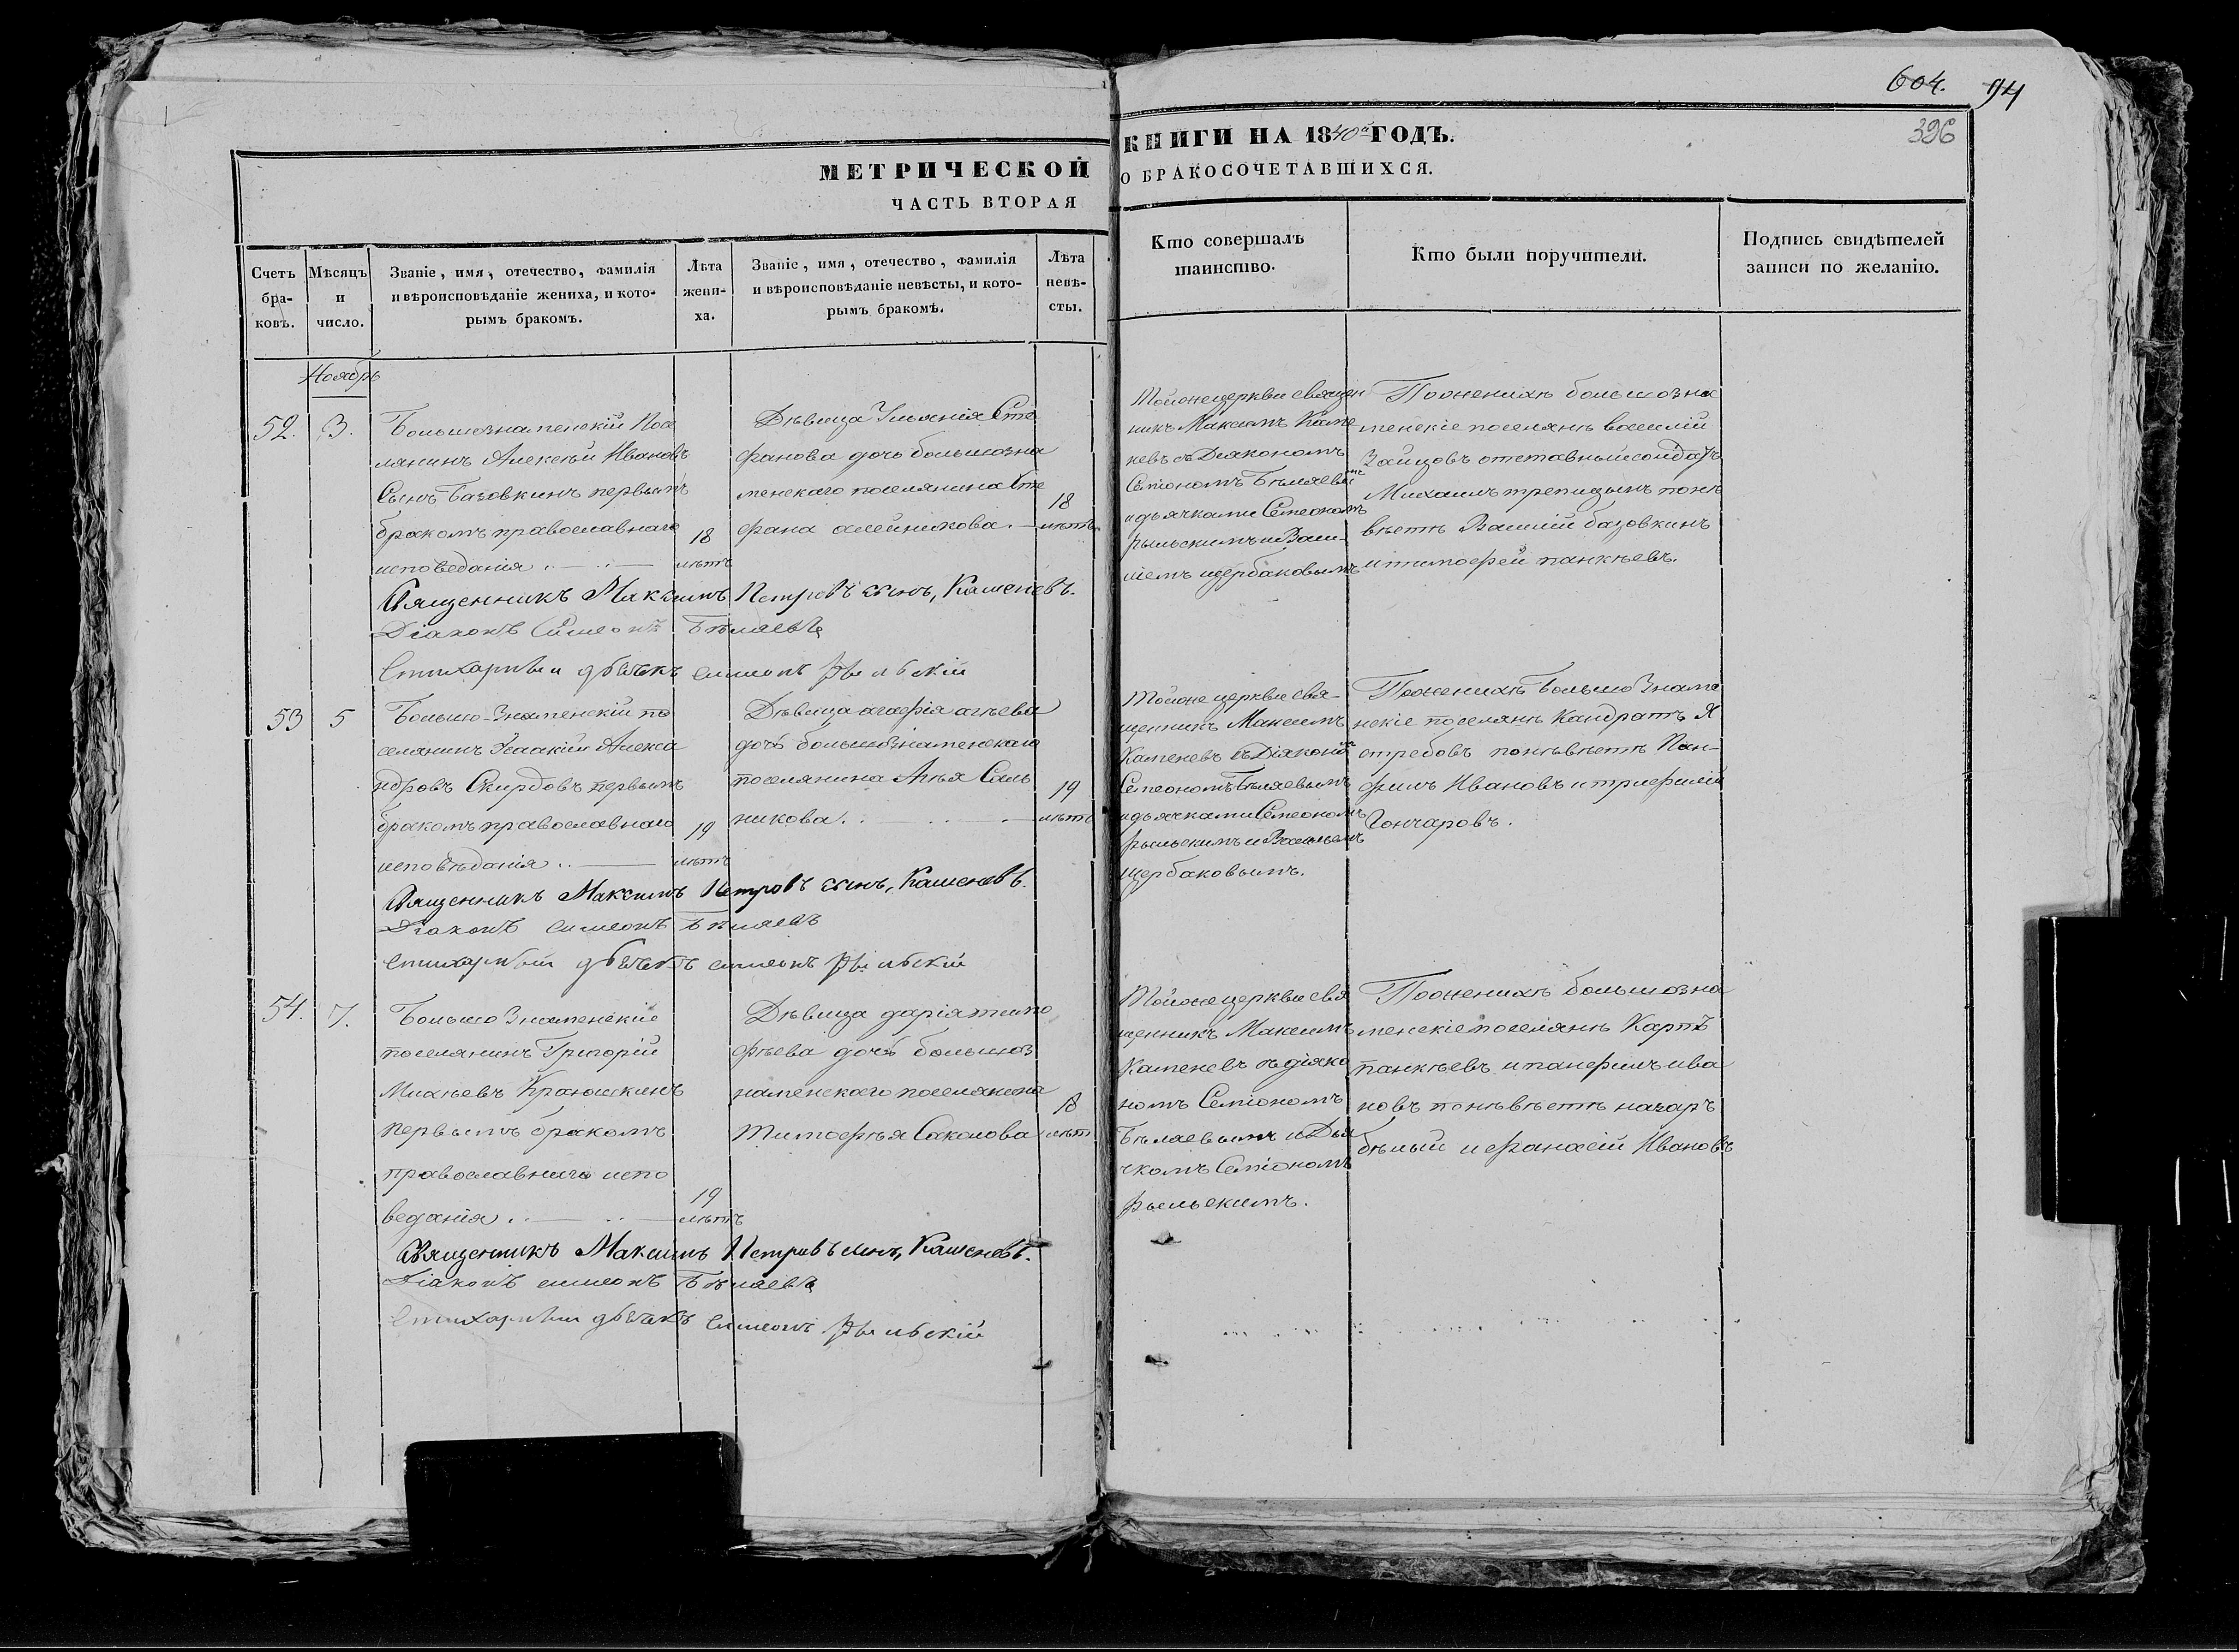 604. 94
396
МЕТРИЧЕСКОЙ
ЧАСТЬ ВТОРАЯ
КНИГИ НА 1840й ГОДЪ.
О БРАКОСОЧЕТАВШИХСЯ.
Счетъ бра-
ковъ.
Мѣсяцъ
и
число.
Званіе, имя, отечество, фамилія
и вѣроисповѣданіе жениха, и кото-
рымъ бракомъ.
Лѣта
жени-
ха.
Званіе, имя, отечество, фамилія
и вѣроисповѣданіе невѣсты, и кото-
рымъ бракомъ.
Лѣта
невѣ-
сты.
Кто совершалъ
таинство.
Кто были поручители.
Подпись свидѣтелей
записи по желанію.
Ноябрь
52. 3.
Большознаменскій Посе
лянинъ Алексѣй Ивановъ
Сынъ Базовкинъ первымъ
бракомъ православнаго
исповедания
18
лѣтъ
Дѣвица Ульянія Сте
фанова дочь большозна
менскаго поселянина Сте
фана олейникова.
18
лѣтъ
Тойже церкви священ
никъ Максимъ Каме
невъ съ Діакономъ
Семіономъ Бѣляевымъ
и дьячками Семеономъ
рыльскимъ и Васи-
ліемъ щербаковымъ
По женихѣ большозна
менскіе поселянѣ василій
Зайцовъ отставный солдатъ
Михаилъ трепицынъ по не
вѣстѣ Василій базовкинъ
и тимофей панкѣевъ.
Священникъ Максимъ Петровъ сынъ, Каменевъ.
Діаконъ Симеонъ Бѣляевъ
Стихарный дьячекъ симеонъ Рыльскій
53 5
Большо-Знаменскій по
селянинъ Исаакій Алекса
ндровъ Скирдовъ первымъ
бракомъ православнаго
исповѣданія
19
лѣтъ
Дѣвица агафія агѣева
дочь большознаменскаго
поселянина Агѣя Саль
никова.
19
лѣтъ
Тойже церкви свя-
щенникъ Максимъ
Каменевъ съ Діакономъ
Семеономъ Бѣляевымъ
и дьячками Семеономъ
рыльскимъ и Васильемъ
щербаковымъ.
По женихѣ Большо Знаме
нскіе поселянѣ Кандратъ Я
стребовъ по невѣстѣ Пан-
филъ Ивановъ и трифилій
Гончаровъ.
Священникъ Максимъ Петровъ сынъ, Каменевъ.
Діаконъ симеонъ Бѣляевъ
стихарный дьячекъ симеонъ Рыльскій
54. 7.
Большо Знаменскіе
поселянинъ Григорій
Михѣевъ Краношкинъ
первымъ бракомъ
православнаго испо
веданія
19
лѣтъ
Дѣвица дарія тимо
фѣева дочь большоз
наменскаго поселянина
Тимофѣя Саколова
18
лѣтъ
Тойже церкви свя
щенникъ Максимъ
Каменевъ съ діако
номъ Семіономъ
Бѣляевымъ и Дья
чкомъ Семіономъ
рыльскимъ.
По женихѣ большозна
менскіе поселянѣ Карпъ
панкѣевъ и панфилъ ива
новъ по невѣстѣ назаръ
бѣлый и афанасій Ивановъ
Священникъ Максимъ Петровъ сынъ, Каменевъ.
Діаконъ симеонъ Бѣляевъ
Стихарный дьячекъ Симеонъ Рыльскій